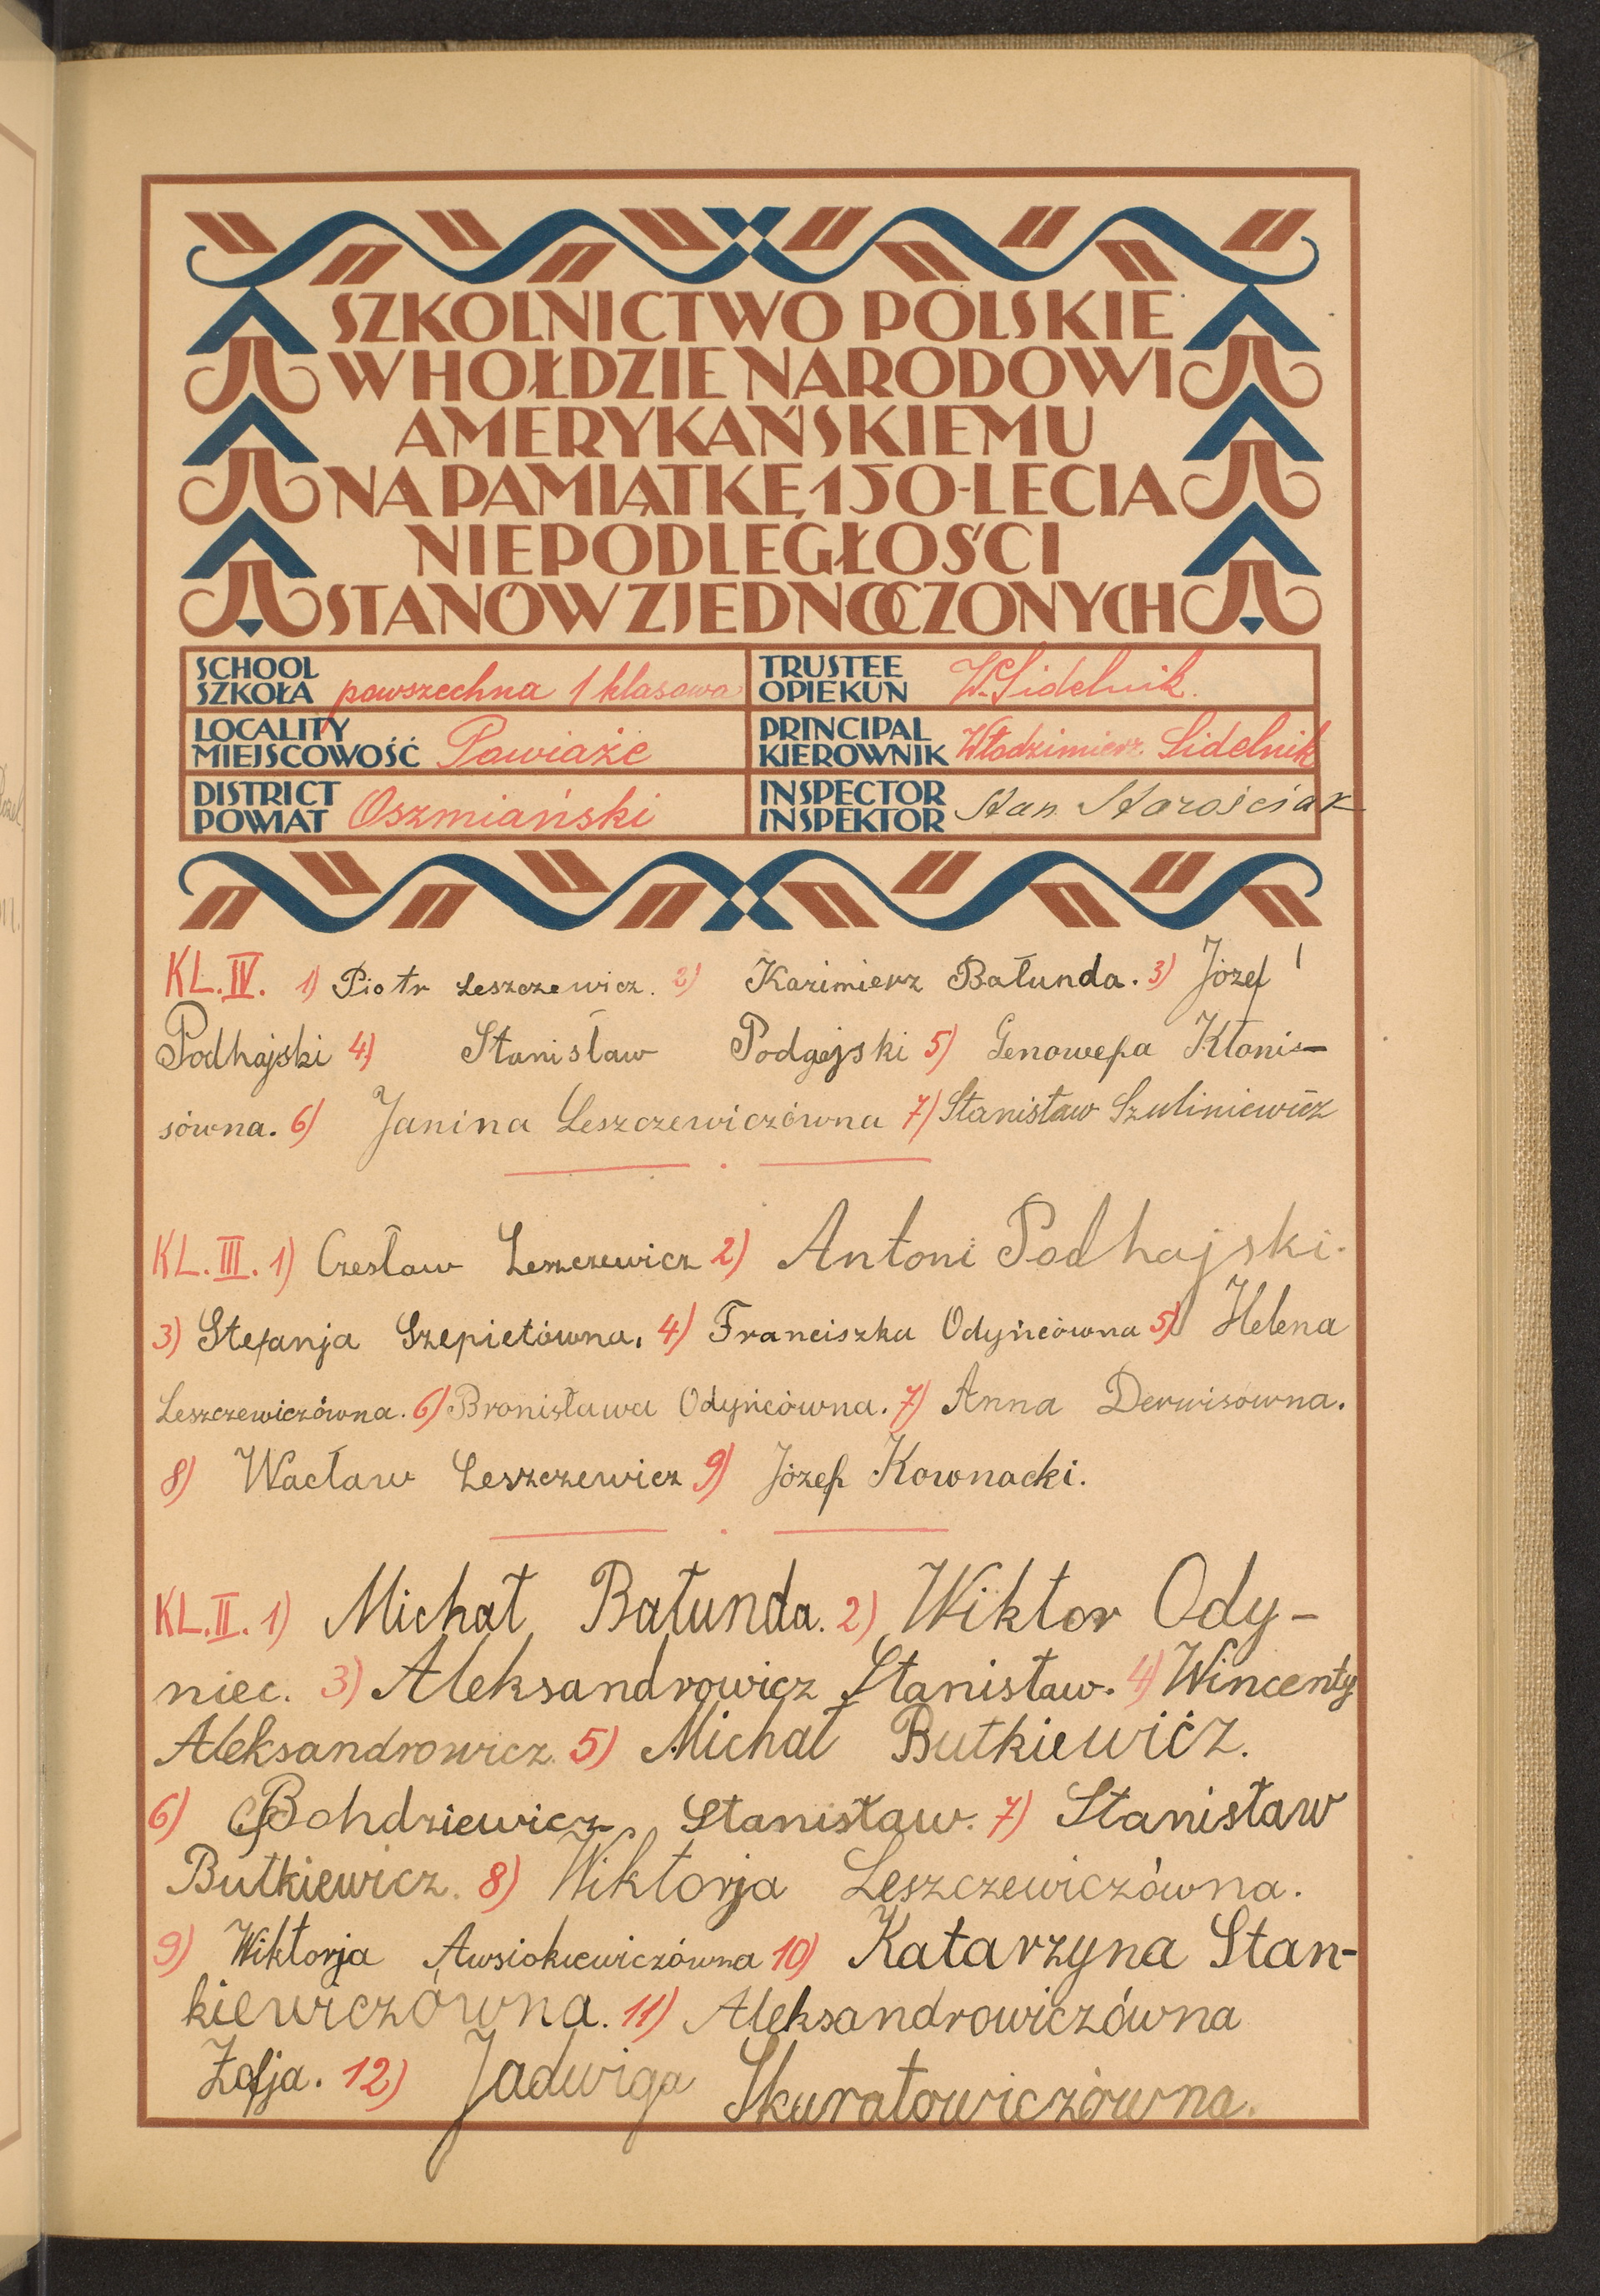 SZKOLNICTWO POLSKIE
W HOŁDZIE NARODOWI
AMERYKAŃSKIEMU
NA PAMIĄTKĘ 150-LECIA
NIEPODLEGŁOŚCI
STANÓW ZJEDNOCZONYCH
SCHOOL
SZKOŁA powszechna 1 klasowa
TRUSTEE
OPIEKUN W. Sidelnik.
LOCALITY
MIEJSCOWOŚĆ Powiaże
PRINCIPAL
KIEROWNIK Włodzimierz Sidelnik
DISTRICT
POWIAT Oszmiański
INSPECTOR
INSPEKTOR Stan. Starościak
KL. IV. 1) Piotr Leszczewicz. 2) Kazimierz Bałunda. 3) Józef
Podhajski 4) Stanisław Podgajski 5) Genowefa Kłoni-
sówna. 6) Janina Leszczewiczówna 7) Stanisław Szuliniewicz
KL. III. 1) Czesław Leszczewicz 2) Antoni Podhajski.
3) Stefanja Szepietówna. 4) Franciszka Odyńcówna 5) Helena
Leszczewiczówna. 6) Bronisława Odyńcówna. 7) Anna Derwisówna.
8) Wacław Leszczewicz 9) Józef Kownacki.
KL. II. 1) Michał Bałunda. 2) Wiktor Ody-
niec. 3) Aleksandrowicz Stanisław. 4) Wincenty
Aleksandrowicz. 5) Michał Butkiewicz.
6) Bohdziewicz Stanisław. 7) Stanisław
Butkiewicz. 8) Wiktorja Leszczewiczówna.
9) Wiktorja Awsiokiewiczówna 10) Katarzyna Stan-
kiewiczówna. 11) Aleksandrowiczówna
Zofja. 12) Jadwiga Skuratowiczówna.